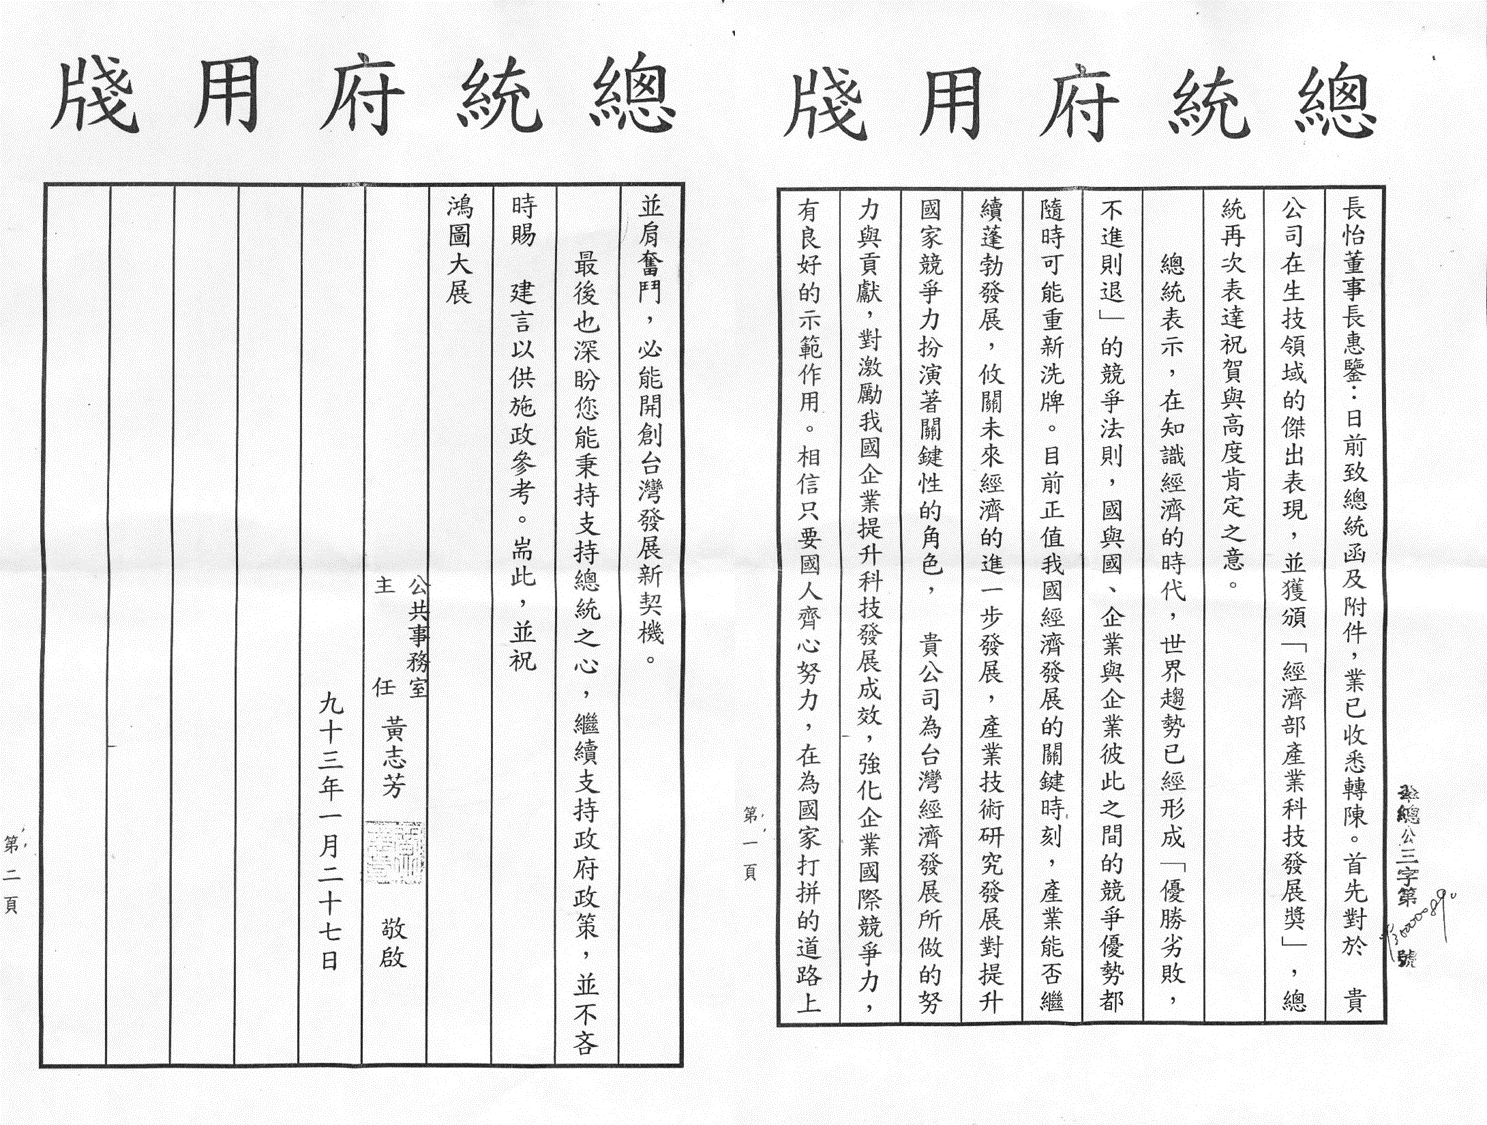 總統府用牋
華總公三字第09300000890號
長怡董事長惠鑒：日前致總統函及附件，業已收悉轉陳。首先對於　貴
公司在生技領域的傑出表現，並獲頒「經濟部產業科技發展獎」，總
統再次表達祝賀與高度肯定之意。
總統表示，在知識經濟的時代，世界趨勢已經形成「優勝劣敗，
不進則退」的競爭法則，國與國、企業與企業彼此之間的競爭優勢都
隨時可能重新洗牌。目前正值我國經濟發展的關鍵時刻，產業能否繼
續蓬勃發展，攸關未來經濟的進一步發展，產業技術研究發展對提升
國家競爭力扮演著關鍵性的角色，　貴公司為台灣經濟發展所做的努
力與貢獻，對激勵我國企業提升科技發展成效，強化企業國際競爭力，
有良好的示範作用。相信只要國人齊心努力，在為國家打拼的道路上
第一頁
總統府用牋
並肩奮鬥，必能開創台灣發展新契機。
最後也深盼您能秉持支持總統之心，繼續支持政府政策，並不吝
時賜　建言以供施政參考。耑此，並祝
鴻圖大展
公共事務室
主任　黃志芳　敬啟
九十三年一月二十七日
第二頁